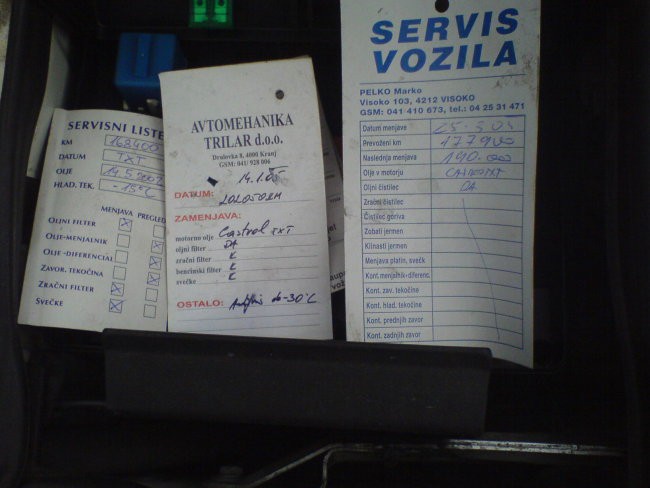 SERVISNI LISTE
KM 163400
DATUM TXT
OLJE 14.5.2002
HLAD. TEK. -15°C
MENJAVA PREGLED
OLJNI FILTER
OLJE-MENJALNIK
OLJE -DIFERENCIAL
ZAVOR. TEKOČINA
ZRAČNI FILTER
SVEČKE
AVTOMEHANIKA
TRILAR d.o.o.
Drulovka 8, 4000 Kranj
GSM: 041/ 928 006
14.1.05
DATUM:
ZAMENJAVA:
motorno olje Castrol TXT
oljni filter DA
zračni filter K
bencinski filter K
svečke K
OSTALO: Antifriz do -30°C
SERVIS
VOZILA
PELKO Marko
Visoko 103, 4212 VISOKO
GSM: 041 410 673, tel.: 04 25 31 471
Datum menjave
Prevoženi km 177900
Naslednja menjava 190.000
Olje v motorju
Oljni čistilec DA
Zračni čistilec
Čistilec goriva
Zobati jermen
Klinasti jermen
Menjava platin, svečk
Kont. menjalnik-diferenc.
Kont. zav. tekočine
Kont. hlad. tekočine
Kont. prednjih zavor
Kont. zadnjih zavor